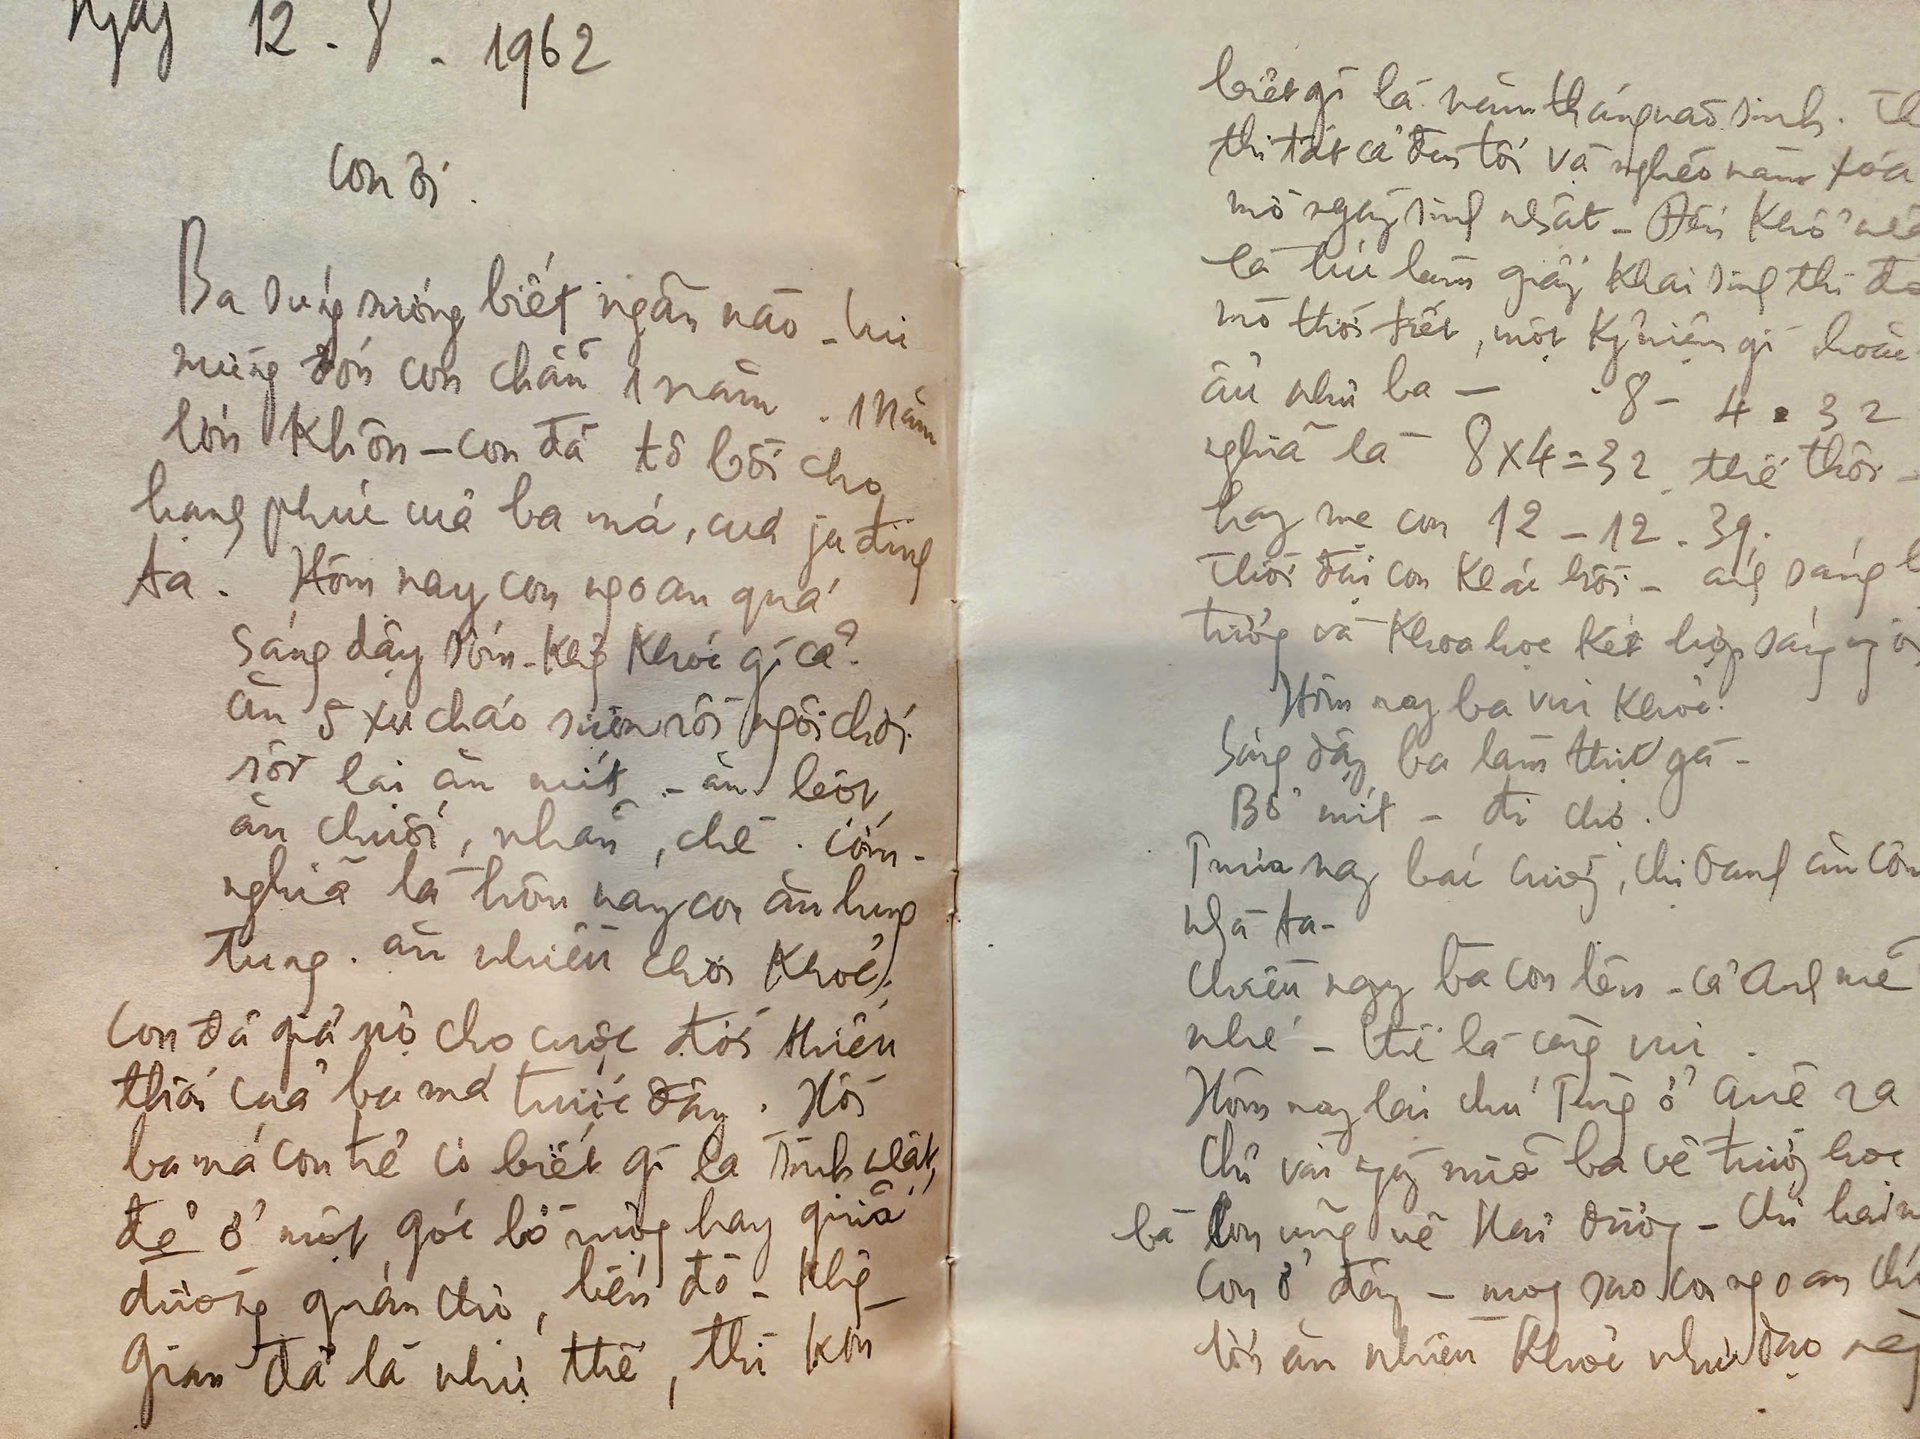 Ngày 12 - 8 - 1962
Con ơi.
Ba sung sướng biết ngần nào - lúc
mừng đón con chẵn 1 năm. 1 năm
lớn khôn - con đã tô bồi cho
hạnh phúc của ba má, của ja đình
ta. Hôm nay con ngoan quá
sáng dậy sớm - khg khóc gì cả.
ăn 5 xu cháo sườn rồi ngồi chơi.
rồi lại ăn mít - ăn
ăn chuối, nhãn, chè. cốm -
nghĩa là hôm nay con ăn lung
tung. ăn nhiều chơi khoẻ,
Con đã giả nợ cho cuộc đời thiếu
thời của ba má trước đây. Hồi
ba má còn trẻ có biết gì là sinh nhật,
đẻ ở một góc bờ ruộng hay giữa
đường quán chợ, bến đò - khg
gian đã là như thế, thì còn
biết gì là năm tháng nào sinh.
thì tất cả đen tối và nghèo nàn xóa
mờ ngày sinh nhật - Đến khổ
là lúc làm giấy khai sinh thì
mò thời tiết, một kỷ niệm gì hoặc
ẩu như ba - 8 - 4 . 32
nghĩa là 8x4=32 thế thôi -
hay me con 12 - 12 . 39.
Thời đại con khác rồi - ánh sáng
tưởng và khoa học kết hợp sáng
Hôm nay ba vui khoẻ.
Sáng dậy ba làm thịt gà -
Bổ mít - đi chợ.
Trưa nay bác Cương, chị Oanh ăn
nhà ta -
Chiều ngay bà con lên - cả
nhé - thế là càng vui.
Hôm nay lại chú Tùng ở quê ra
Chỉ vài ngày nữa ba về trường học
bà con cũng về Hải Dương - Chỉ hai
con ở đây - mong sao con ngoan
lớn ăn nhiều khoẻ như dạo